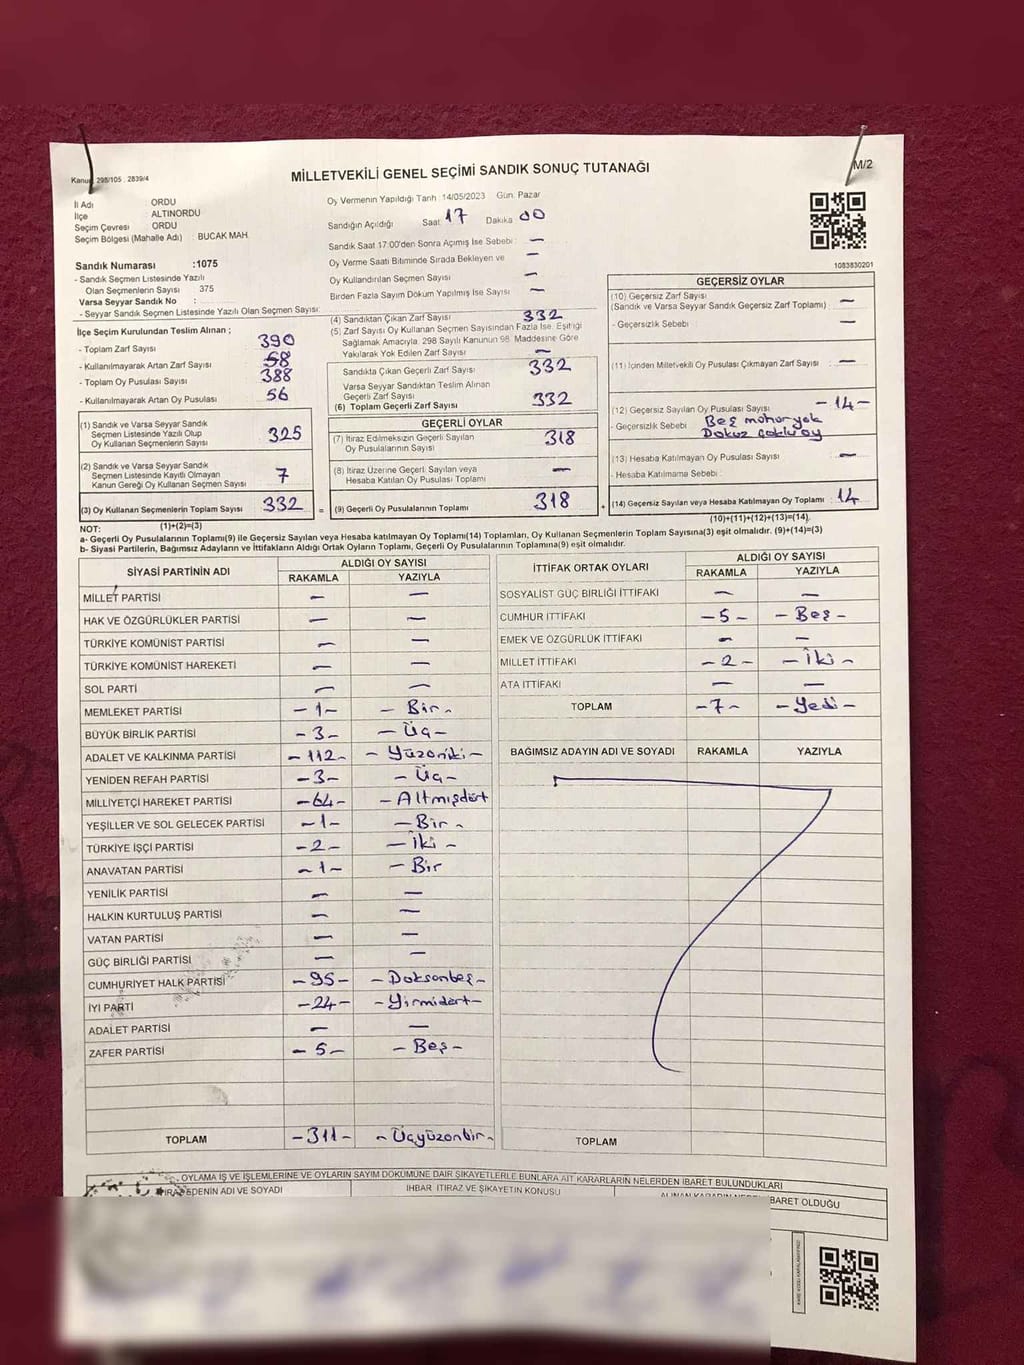 Kanun 298/105 . 2839/4
MİLLETVEKİLİ GENEL SEÇİMİ SANDIK SONUÇ TUTANAĞI
M/2
İl Adı : ORDU
İlçe : ALTINORDU
Seçim Çevresi : ORDU
Seçim Bölgesi (Mahalle Adı) : BUCAK MAH.
Sandık Numarası :1075
- Sandık Seçmen Listesinde Yazılı
Olan Seçmenlerin Sayısı 375
Varsa Seyyar Sandık No :
- Seyyar Sandık Seçmen Listesinde Yazılı Olan Seçmen Sayısı:
Oy Vermenin Yapıldığı Tarih :14/05/2023 Gün: Pazar
Sandığın Açıldığı Saat 17 Dakika 00
Sandık Saat 17:00'den Sonra Açımış İse Sebebi : —
Oy Verme Saati Bitiminde Sırada Bekleyen ve —
Oy Kullandırılan Seçmen Sayısı —
Birden Fazla Sayım Döküm Yapılmış İse Sayısı : —
1083830201
İlçe Seçim Kurulundan Teslim Alınan ;
- Toplam Zarf Sayısı 390
- Kullanılmayarak Artan Zarf Sayısı 58
- Toplam Oy Pusulası Sayısı 388
- Kullanılmayarak Artan Oy Pusulası 56
(1) Sandık ve Varsa Seyyar Sandık
Seçmen Listesinde Yazılı Olup
Oy Kullanan Seçmenlerin Sayısı 325
(2) Sandık ve Varsa Seyyar Sandık
Seçmen Listesinde Kayıtlı Olmayan
Kanun Gereği Oy Kullanan Seçmen Sayısı 7
(3) Oy Kullanan Seçmenlerin Toplam Sayısı 332
(1)+(2)=(3)
(4) Sandıktan Çıkan Zarf Sayısı 332
(5) Zarf Sayısı Oy Kullanan Seçmen Sayısından Fazla İse, Eşitliği
Sağlamak Amacıyla, 298 Sayılı Kanunun 98. Maddesine Göre
Yakılarak Yok Edilen Zarf Sayısı —
Sandıkta Çıkan Geçerli Zarf Sayısı 332
Varsa Seyyar Sandıktan Teslim Alınan
Geçerli Zarf Sayısı
(6) Toplam Geçerli Zarf Sayısı 332
GEÇERLİ OYLAR
(7) İtiraz Edilmeksizin Geçerli Sayılan
Oy Pusulalarının Sayısı 318
(8) İtiraz Üzerine Geçerli Sayılan veya
Hesaba Katılan Oy Pusulası Toplamı —
= (9) Geçerli Oy Pusulalarının Toplamı 318 +
GEÇERSİZ OYLAR
(10) Geçersiz Zarf Sayısı
(Sandık ve Varsa Seyyar Sandık Geçersiz Zarf Toplamı) : —
- Geçersizlik Sebebi : —
(11) İçinden Milletvekili Oy Pusulası Çıkmayan Zarf Sayısı : —
(12) Geçersiz Sayılan Oy Pusulası Sayısı -14-
- Geçersizlik Sebebi : Beş mühür yok
Dokuz çoklu oy
(13) Hesaba Katılmayan Oy Pusulası Sayısı —
- Hesaba Katılmama Sebebi :
(14) Geçersiz Sayılan veya Hesaba Katılmayan Oy Toplamı : 14
(10)+(11)+(12)+(13)=(14).
NOT:
a- Geçerli Oy Pusulalarının Toplamı(9) ile Geçersiz Sayılan veya Hesaba katılmayan Oy Toplamı(14) Toplamları, Oy Kullanan Seçmenlerin Toplam Sayısına(3) eşit olmalıdır. (9)+(14)=(3)
b- Siyasi Partilerin, Bağımsız Adayların ve İttifakların Aldığı Ortak Oyların Toplamı, Geçerli Oy Pusulalarının Toplamına(9) eşit olmalıdır.
SİYASİ PARTİNİN ADI ALDIĞI OY SAYISI
RAKAMLA YAZIYLA
MİLLET PARTİSİ — —
HAK VE ÖZGÜRLÜKLER PARTİSİ — —
TÜRKİYE KOMÜNİST PARTİSİ — —
TÜRKİYE KOMÜNİST HAREKETİ — —
SOL PARTİ — —
MEMLEKET PARTİSİ -1- - Bir -
BÜYÜK BİRLİK PARTİSİ -3- - Üç -
ADALET VE KALKINMA PARTİSİ -112- - Yüzoniki -
YENİDEN REFAH PARTİSİ -3- - Üç -
MİLLİYETÇİ HAREKET PARTİSİ -64- - Altmışdört
YEŞİLLER VE SOL GELECEK PARTİSİ -1- - Bir -
TÜRKİYE İŞÇİ PARTİSİ -2- - İki -
ANAVATAN PARTİSİ -1- - Bir
YENİLİK PARTİSİ — —
HALKIN KURTULUŞ PARTİSİ — —
VATAN PARTİSİ — —
GÜÇ BİRLİĞİ PARTİSİ — —
CUMHURİYET HALK PARTİSİ -95- - Doksanbeş -
İYİ PARTİ -24- - Yirmidört -
ADALET PARTİSİ — —
ZAFER PARTİSİ -5- - Beş -
TOPLAM -311- - Üçyüzonbir -
İTTİFAK ORTAK OYLARI ALDIĞI OY SAYISI
RAKAMLA YAZIYLA
SOSYALİST GÜÇ BİRLİĞİ İTTİFAKI — —
CUMHUR İTTİFAKI -5- - Beş -
EMEK VE ÖZGÜRLÜK İTTİFAKI — —
MİLLET İTTİFAKI -2- - İki -
ATA İTTİFAKI — —
TOPLAM -7- - Yedi -
BAĞIMSIZ ADAYIN ADI VE SOYADI RAKAMLA YAZIYLA
TOPLAM
OYLAMA İŞ VE İŞLEMLERİNE VE OYLARIN SAYIM DÖKÜMÜNE DAİR ŞİKAYETLERLE BUNLARA AİT KARARLARIN NELERDEN İBARET BULUNDUKLARI
EDENİN ADI VE SOYADI İHBAR İTİRAZ VE ŞİKAYETİN KONUSU BARET OLDUĞU